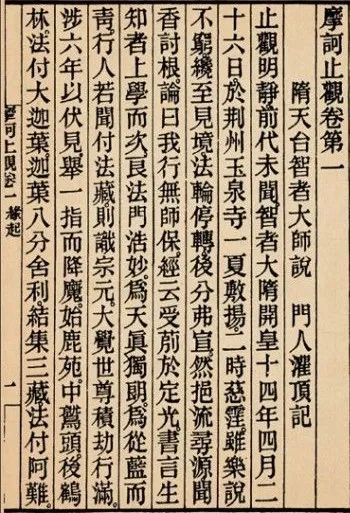 摩訶止觀卷第一
隋天台智者大師說　門人灌頂記
止觀明靜前代未聞。智者大隋開皇十四年四月二
十六日於荊州玉泉寺一夏敷揚。二時慈霔。雖樂說
不窮。纔至見境。法輪停轉。後分弗宣。然挹流尋源。聞
香討根。論曰我行無師保。經云受前於定光。書言生
知者上。學而次良。法門浩妙。爲天眞獨朗。爲從藍而
靑。行人若聞付法藏。則識宗元。大覺世尊積劫行滿。
涉六年以伏見。舉一指而降魔。始鹿苑。中鷲頭。後鶴
林。法付大迦葉。迦葉八分舍利。結集三藏。法付阿難。
摩訶止觀卷一　緣起　一